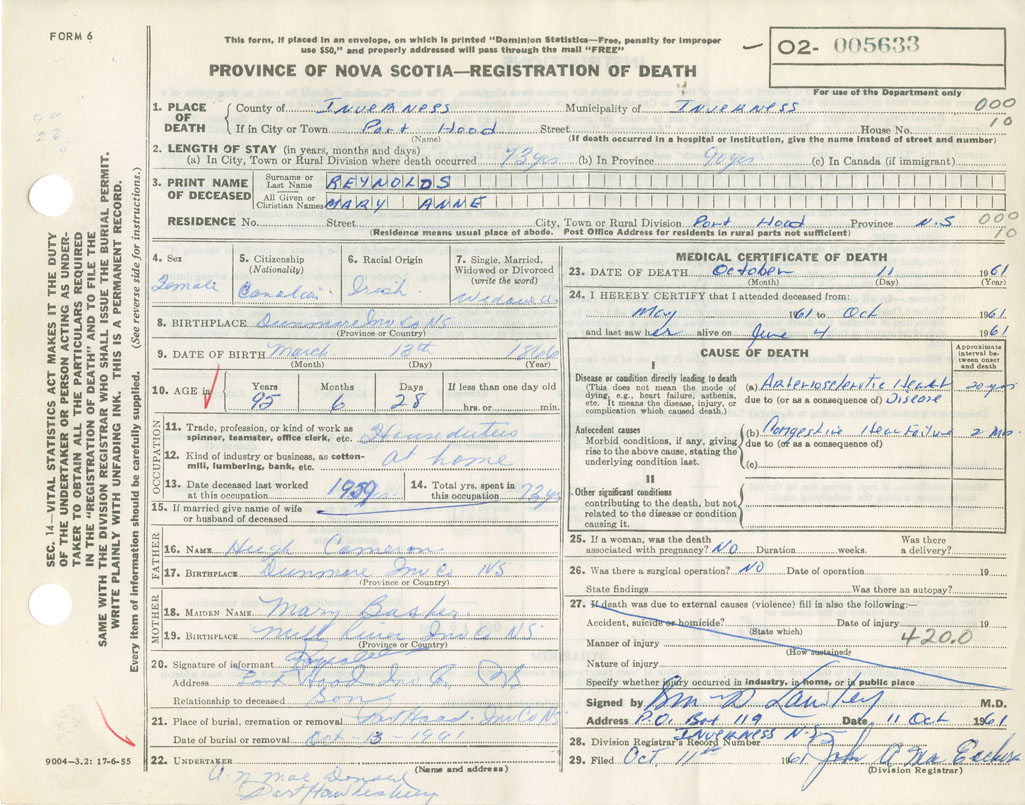 FORM 6
This form, if placed in an envelope, on which is printed "Dominion Statistics—Free, penalty for improper
use $50," and properly addressed will pass through the mail "FREE"
O2- 005633
PROVINCE OF NOVA SCOTIA—REGISTRATION OF DEATH
For use of the Department only
1. PLACE OF DEATH County of INVERNESS Municipality of INVERNESS 000
If in City or Town Port Hood Street House No. 10
(Name) (If death occurred in a hospital or institution, give the name instead of street and number)
2. LENGTH OF STAY (in years, months and days)
(a) In City, Town or Rural Division where death occurred 73 yrs (b) In Province 90 yrs (c) In Canada (if immigrant)
3. PRINT NAME OF DECEASED Surname or Last Name REYNOLDS
All Given or Christian Names MARY ANNE
RESIDENCE No. Street City, Town or Rural Division Port Hood Province N.S 000
(Residence means usual place of abode. Post Office Address for residents in rural parts not sufficient) 10
4. Sex Female
5. Citizenship (Nationality) Canadian
6. Racial Origin Irish
7. Single, Married, Widowed or Divorced (write the word) Widowed
8. BIRTHPLACE Dunmore Inv Co NS
(Province or Country)
9. DATE OF BIRTH March 13th 1866
(Month) (Day) (Year)
10. AGE in Years 95 Months 6 Days 28 If less than one day old hrs. or min.
OCCUPATION
11. Trade, profession or kind of work as spinner, teamster, office clerk, etc. House duties
12. Kind of industry or business, as cotton-mill, lumbering, bank, etc. at home
13. Date deceased last worked at this occupation 1959
14. Total yrs. spent in this occupation 72 yrs
15. If married give name of wife or husband of deceased
FATHER
16. NAME Hugh Cameron
17. BIRTHPLACE Dunmore Inv Co NS
(Province or Country)
MOTHER
18. MAIDEN NAME Mary
19. BIRTHPLACE Mill River Inv Co NS
(Province or Country)
20. Signature of informant
Address Port Hood Inv Co, NS
Relationship to deceased Son
21. Place of burial, cremation or removal Port Hood Inv Co NS
Date of burial or removal Oct - 13 - 1961
22. UNDERTAKER
(Name and address)
Mac Donald
Port Hawkesbury
9004—3.2: 17-6-55
MEDICAL CERTIFICATE OF DEATH
23. DATE OF DEATH October 11 1961
(Month) (Day) (Year)
24. I HEREBY CERTIFY that I attended deceased from:
May 1961 to Oct 1961
and last saw her alive on June 4 1961
CAUSE OF DEATH
Approximate interval between onset and death
I
Disease or condition directly leading to death
(This does not mean the mode of dying, e.g., heart failure, asthenia, etc. It means the disease, injury, or complication which caused death.)
(a) Arteriosclerotic Heart 20 yrs
due to (or as a consequence of) Disease
Antecedent causes
Morbid conditions, if any, giving rise to the above cause, stating the underlying condition last.
(b) Congestive Heart Failure 2 Mos.
due to (or as a consequence of)
(c)
II
Other significant conditions
contributing to the death, but not related to the disease or condition causing it.
25. If a woman, was the death associated with pregnancy? NO Duration weeks. Was there a delivery?
26. Was there a surgical operation? NO Date of operation 19
State findings Was there an autopsy?
27. If death was due to external causes (violence) fill in also the following:—
Accident, suicide or homicide? Date of injury 19
(State which)
Manner of injury 420.0
(How sustained)
Nature of injury
Specify whether injury occurred in industry, in home, or in public place
Signed by M.D.
Address P.O. Box 119 Date 11 Oct 1961
INVERNESS N.S.
28. Division Registrar's Record Number
29. Filed Oct. 11th 1961 John A
(Division Registrar)
SEC. 14—VITAL STATISTICS ACT MAKES IT THE DUTY
OF THE UNDERTAKER OR PERSON ACTING AS UNDER-
TAKER TO OBTAIN ALL THE PARTICULARS REQUIRED
IN THE "REGISTRATION OF DEATH" AND TO FILE THE
SAME WITH THE DIVISION REGISTRAR WHO SHALL ISSUE THE BURIAL PERMIT.
WRITE PLAINLY WITH UNFADING INK. THIS IS A PERMANENT RECORD.
Every item of information should be carefully supplied. (See reverse side for instructions.)